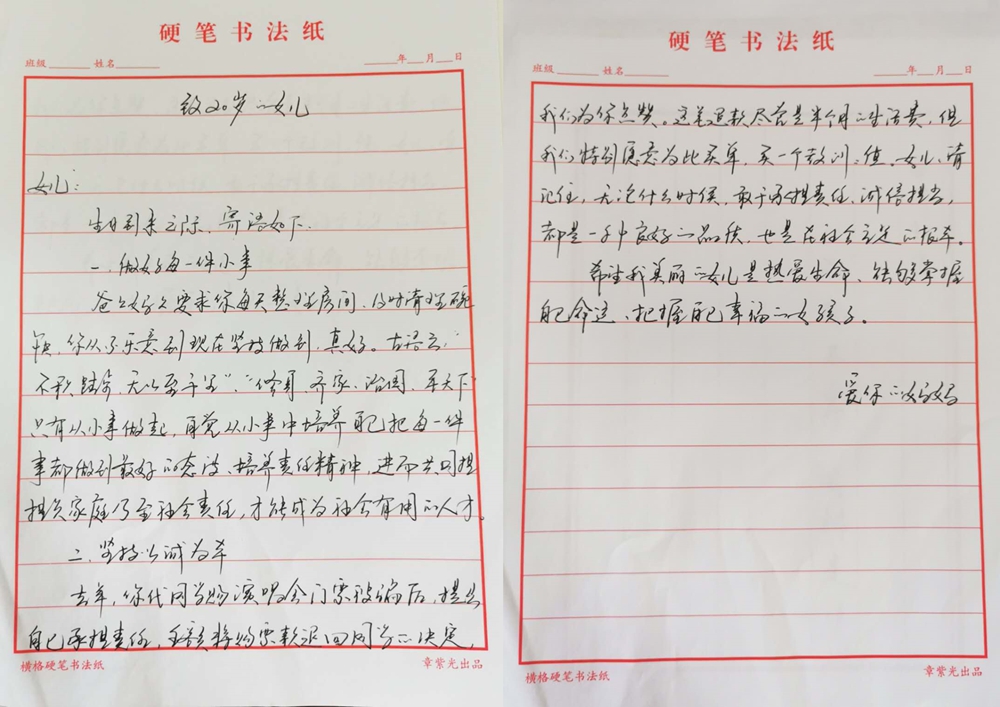 硬笔书法纸
班级 姓名 年 月 日
致20岁的女儿
女儿:
生日到来之际、寄语如下.
一.做好每一件小事
爸爸妈妈要求你每天整理房间、及时清理碗
筷,你从不乐意到现在坚持做到,真好。古语云:"
不积跬步,无以至千里"、"修身、齐家、治国、平天下"
只有从小事做起,自觉从小事中培养自己把每一件
事都做到最好的态度、培养责任精神,进而共同担
担负家庭乃至社会责任,才能成为社会有用的人才。
二.坚持以诚为本
去年,你代同学购演唱会门票被骗后,提出
自己承担责任,全额将购票款退回同学的决定,
横格硬笔书法纸 章紫光出品
硬笔书法纸
班级 姓名 年 月 日
我们为你点赞。这笔退款尽管是半个月的生活费,但
我们特别愿意为此买单,买一个教训:值。女儿、请
记住,无论什么时候,敢于承担责任,诚信担当,
都是一个中良好的品质,也是在社会立足的根本。
希望我美丽的女儿是热爱生命、能够掌握
自己命运、把握自己幸福的女孩子。
爱你的妈妈
横格硬笔书法纸 章紫光出品